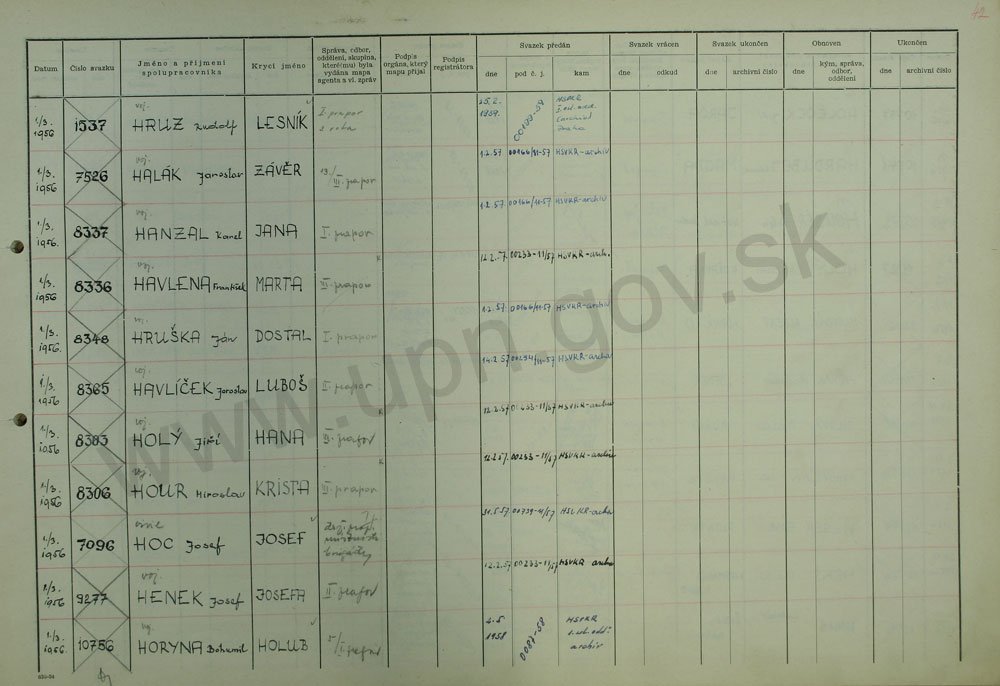 42
Datum
Číslo svazku
Jméno a příjmení spolupracovníka
Krycí jméno
Správa, odbor, oddělení, skupina, které(mu) byla vydána mapa agenta a vl. zpráv
Podpis orgána, který mapu přijal
Podpis registrátora
Svazek předán
dne
pod č. j.
kam
Svazek vrácen
dne
odkud
Svazek ukončen
dne
archivní číslo
Obnoven
dne
kým, správa, odbor, oddělení
Ukončen
dne
archivní číslo
1/3. 1956 1537 voj. HRUZ Rudolf LESNÍK I. prapor 25.2. 1959. 00199-59 HSVKR
1/3. 1956 7526 voj. HALÁK Jaroslav ZÁVĚR III. prapor 1.2.57 00166/11-57 HSVKR-archiv
1/3. 1956. 8337 voj. HANZAL Karel JANA I. prapor 1.2.57 00166/11-57 HSVKR-archiv
1/3. 1956 8336 voj. HAVLENA František MARTA III. prapor 12.2.57. 00233-11/57 HSVKR-archiv
1/3. 1956. 8348 voj. HRUŠKA Ján DOSTAL I. prapor 1.2.57 00166/11-57 HSVKR-archiv
1/3. 1956 8365 voj. HAVLÍČEK Jaroslav LUBOŠ I. prapor 14.2.57 00254/11-57 HSVKR-archiv
1/3. 1956 8383 voj. HOLÝ Jiří HANA III. prapor 12.2.57 00233-11/57 HSVKR-archiv
1/3. 1956 8306 voj. HOUR Miroslav KRISTA III. prapor 12.2.57. 00233-11/57 HSVKR-archiv
1/3. 1956 7096 civil HOC Josef JOSEF 31.5.57 00739-11/57 HSVKR-archiv
1/3. 1956 9277 voj. HENEK Josef JOSEFA II. prapor 12.2.57 00233-11/57 HSVKR archiv
1/3. 1956. 10756 voj. HORYNA Bohumil HOLUB prapor 2.5. 1958 0087-58 HSVKR archiv
www.upn.gov.sk